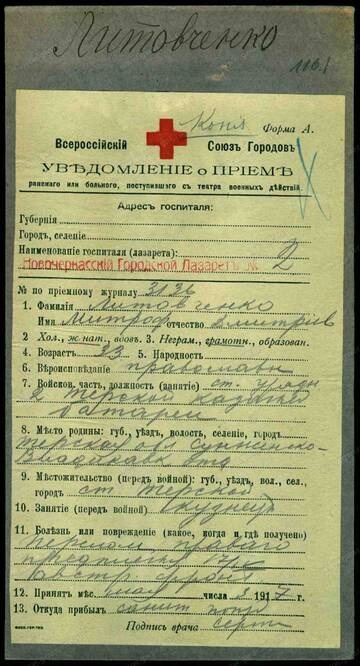 Литовченко
Копия
Форма А.
Всероссійскій Союзъ Городовъ
УВѢДОМЛЕНІЕ о ПРІЕМѢ
раненаго или больного, поступившаго съ театра военныхъ дѣйствій.
Адресъ госпиталя:
Губернія
Городъ, селеніе
Наименованіе госпиталя (лазарета)
Новочеркасскій Городской Лазаретъ № 2
№ по пріемному журналу 3136
1. Фамилія Литовченко
Имя Митроф отчество Дмитріев
2 Хол., ж.нат., вдовъ. 3. Неграм., грамотн., образован.
4. Возрастъ 33 5. Народность
6. Вѣроисповѣданіе православн
7. Войсков. часть, должность (занятіе) ст. урядн
2 Терской казачьей
батареи
8. Мѣсто родины: губ., уѣздъ, волость, селеніе, городъ
Терской
9. Мѣстожительство (передъ войной): губ., уѣздъ, вол., сел.,
городъ ст Терской
10. Занятіе (передъ войной) кузнецъ
11. Болѣзнь или поврежденіе (какое, когда и гдѣ получено)
12. Принятъ мѣс. мая числа 3 1917 г.
13. Откуда прибылъ санит
Подпись врача